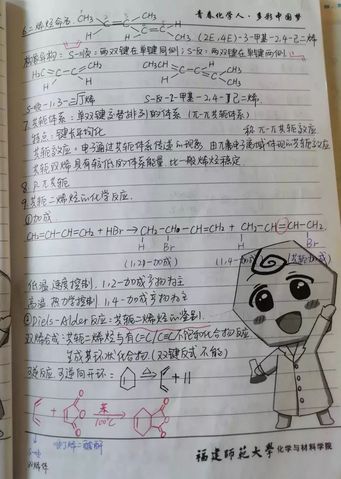 青春化学人·多彩中国梦
6.二烯烃命名:
(2E,4E)-3-甲基-2,4-己二烯
构象异构: S-顺:两双键在单键同侧; S-反:两双键在单键两侧
S-顺-1,3-丁二烯 S-反-2-甲基-2,4-己二烯
7.共轭体系:单双键交替排列的体系(π-π共轭体系)
特点:键长平均化 称π-π共轭效应
共轭效应:电子通过共轭体系传递的现象
共轭双烯具有较低的体系能量 比一般烯烃稳定
8. P-π共轭
9.共轭二烯烃的化学反应
①加成
CH₂=CH-CH=CH₂ + HBr → CH₂-CH-CH=CH₂ + CH₂-CH=CH-CH₂
H Br H Br
(1,2-加成) (1,4-加成) (共轭加成)
低温 速度控制 1,2-加成产物为主
高温 热力学控制 1,4-加成产物为主
②Diels-Alder反应:共轭二烯烃的
双烯合成:共轭二烯烃与有C=C/C≡C不饱和化合物反应
生成其环状化合物(双键反式不能)
逆反应 逆向开环:
△
+
苯
100℃
S-顺
福建师范大学 化学与材料学院